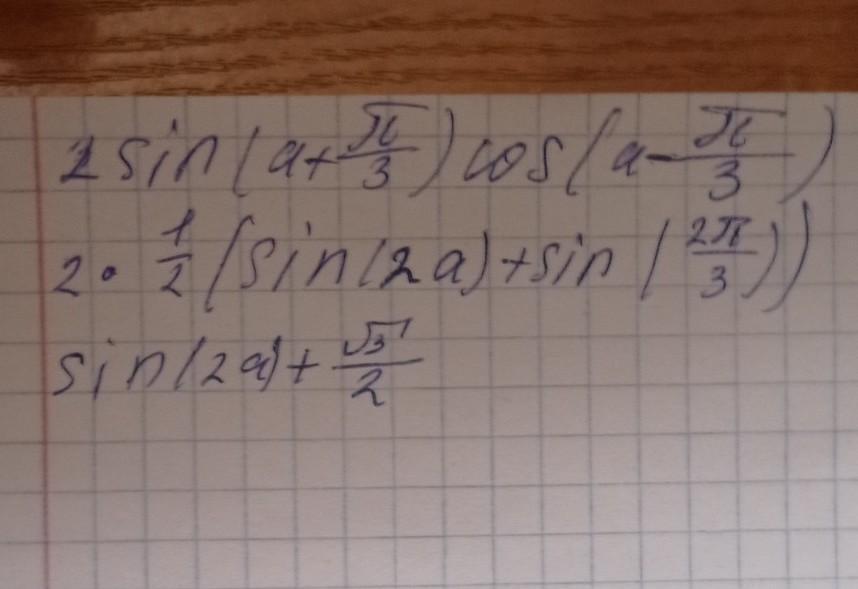 2 sin(a+π/3) cos(a-π/3)
2 • 1/2 (sin(2a)+sin(2π/3))
sin(2a)+√3/2